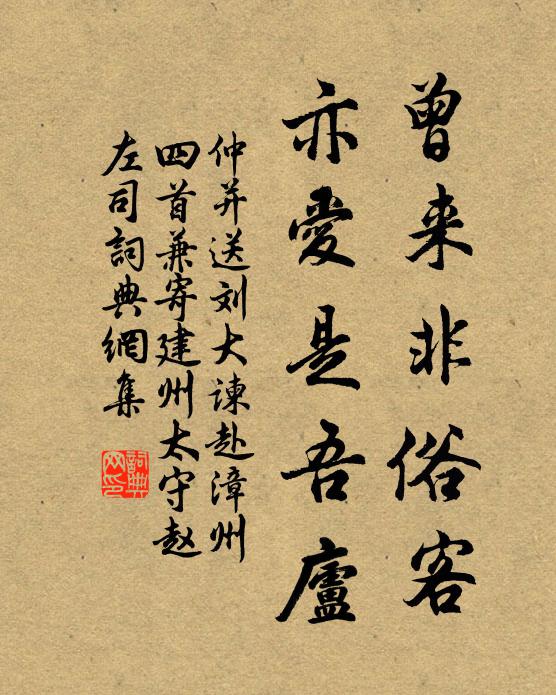 曾来非俗客
亦愛是吾廬
仲并送刘大諫赴漳州
四首兼寄建州太守赵
左司詞典網集
詞典网印